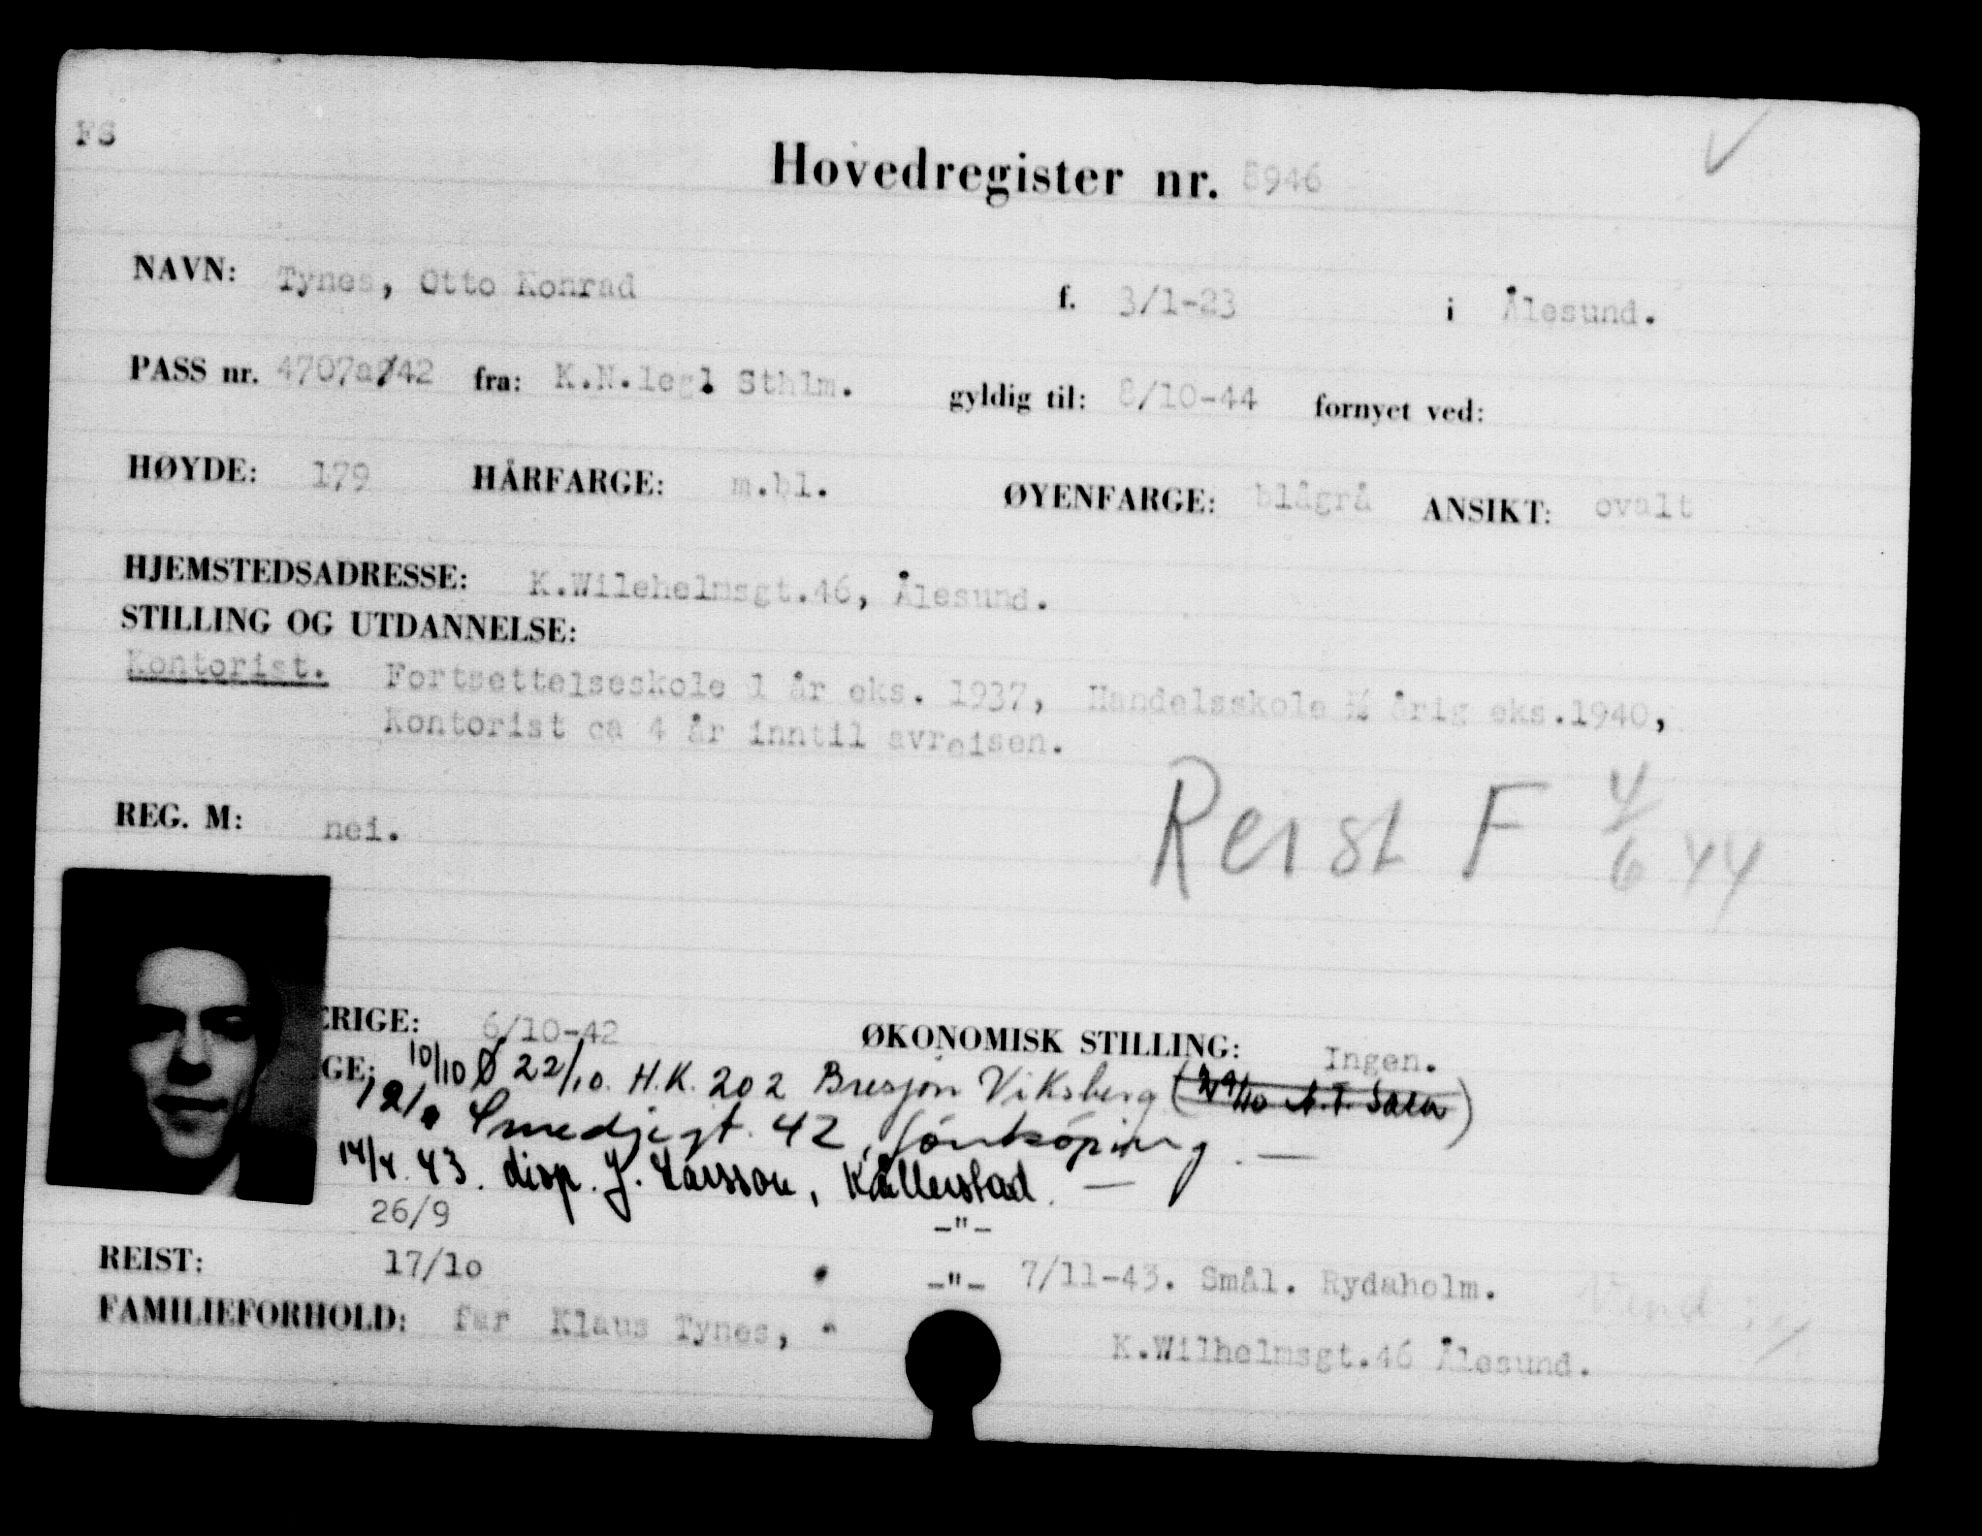 FS
Hovedregister nr. 8946
NAVN: Tynes, Otto Konrad f. 3/1-23 i Ålesund.
PASS nr. 4707a/42 fra: K.N.legl Sthlm. gyldig til: 8/10-44 fornyet ved:
HØYDE: 179 HÅRFARGE: m.bl. ØYENFARGE: blågrå ANSIKT: ovalt
HJEMSTEDSADRESSE: K.Wilehelmsgt.46, Ålesund.
STILLING OG UTDANNELSE:
Kontorist. Fortsettelseskole 1 år eks. 1937, Handelsskole ½ årig eks.1940,
Kontorist ca 4 år inntil avreisen.
REG. M: nei.
Reist F 4/6 44
ERIGE: 6/10-42 ØKONOMISK STILLING: Ingen.
GE: 10/10 Ø 22/10. H.K. 202 Bresjön Viksberg (29/10 A.T. Sala)
Smedjegt. 42, Jönköping. —
14/4 43. disp. J. Larsson, Kållerstad. —
26/9 -"-
REIST: 17/10 -"- 7/11-43. Smål. Rydaholm.
Vend
FAMILIEFORHOLD: far Klaus Tynes, K.Wilhelmsgt.46 Ålesund.